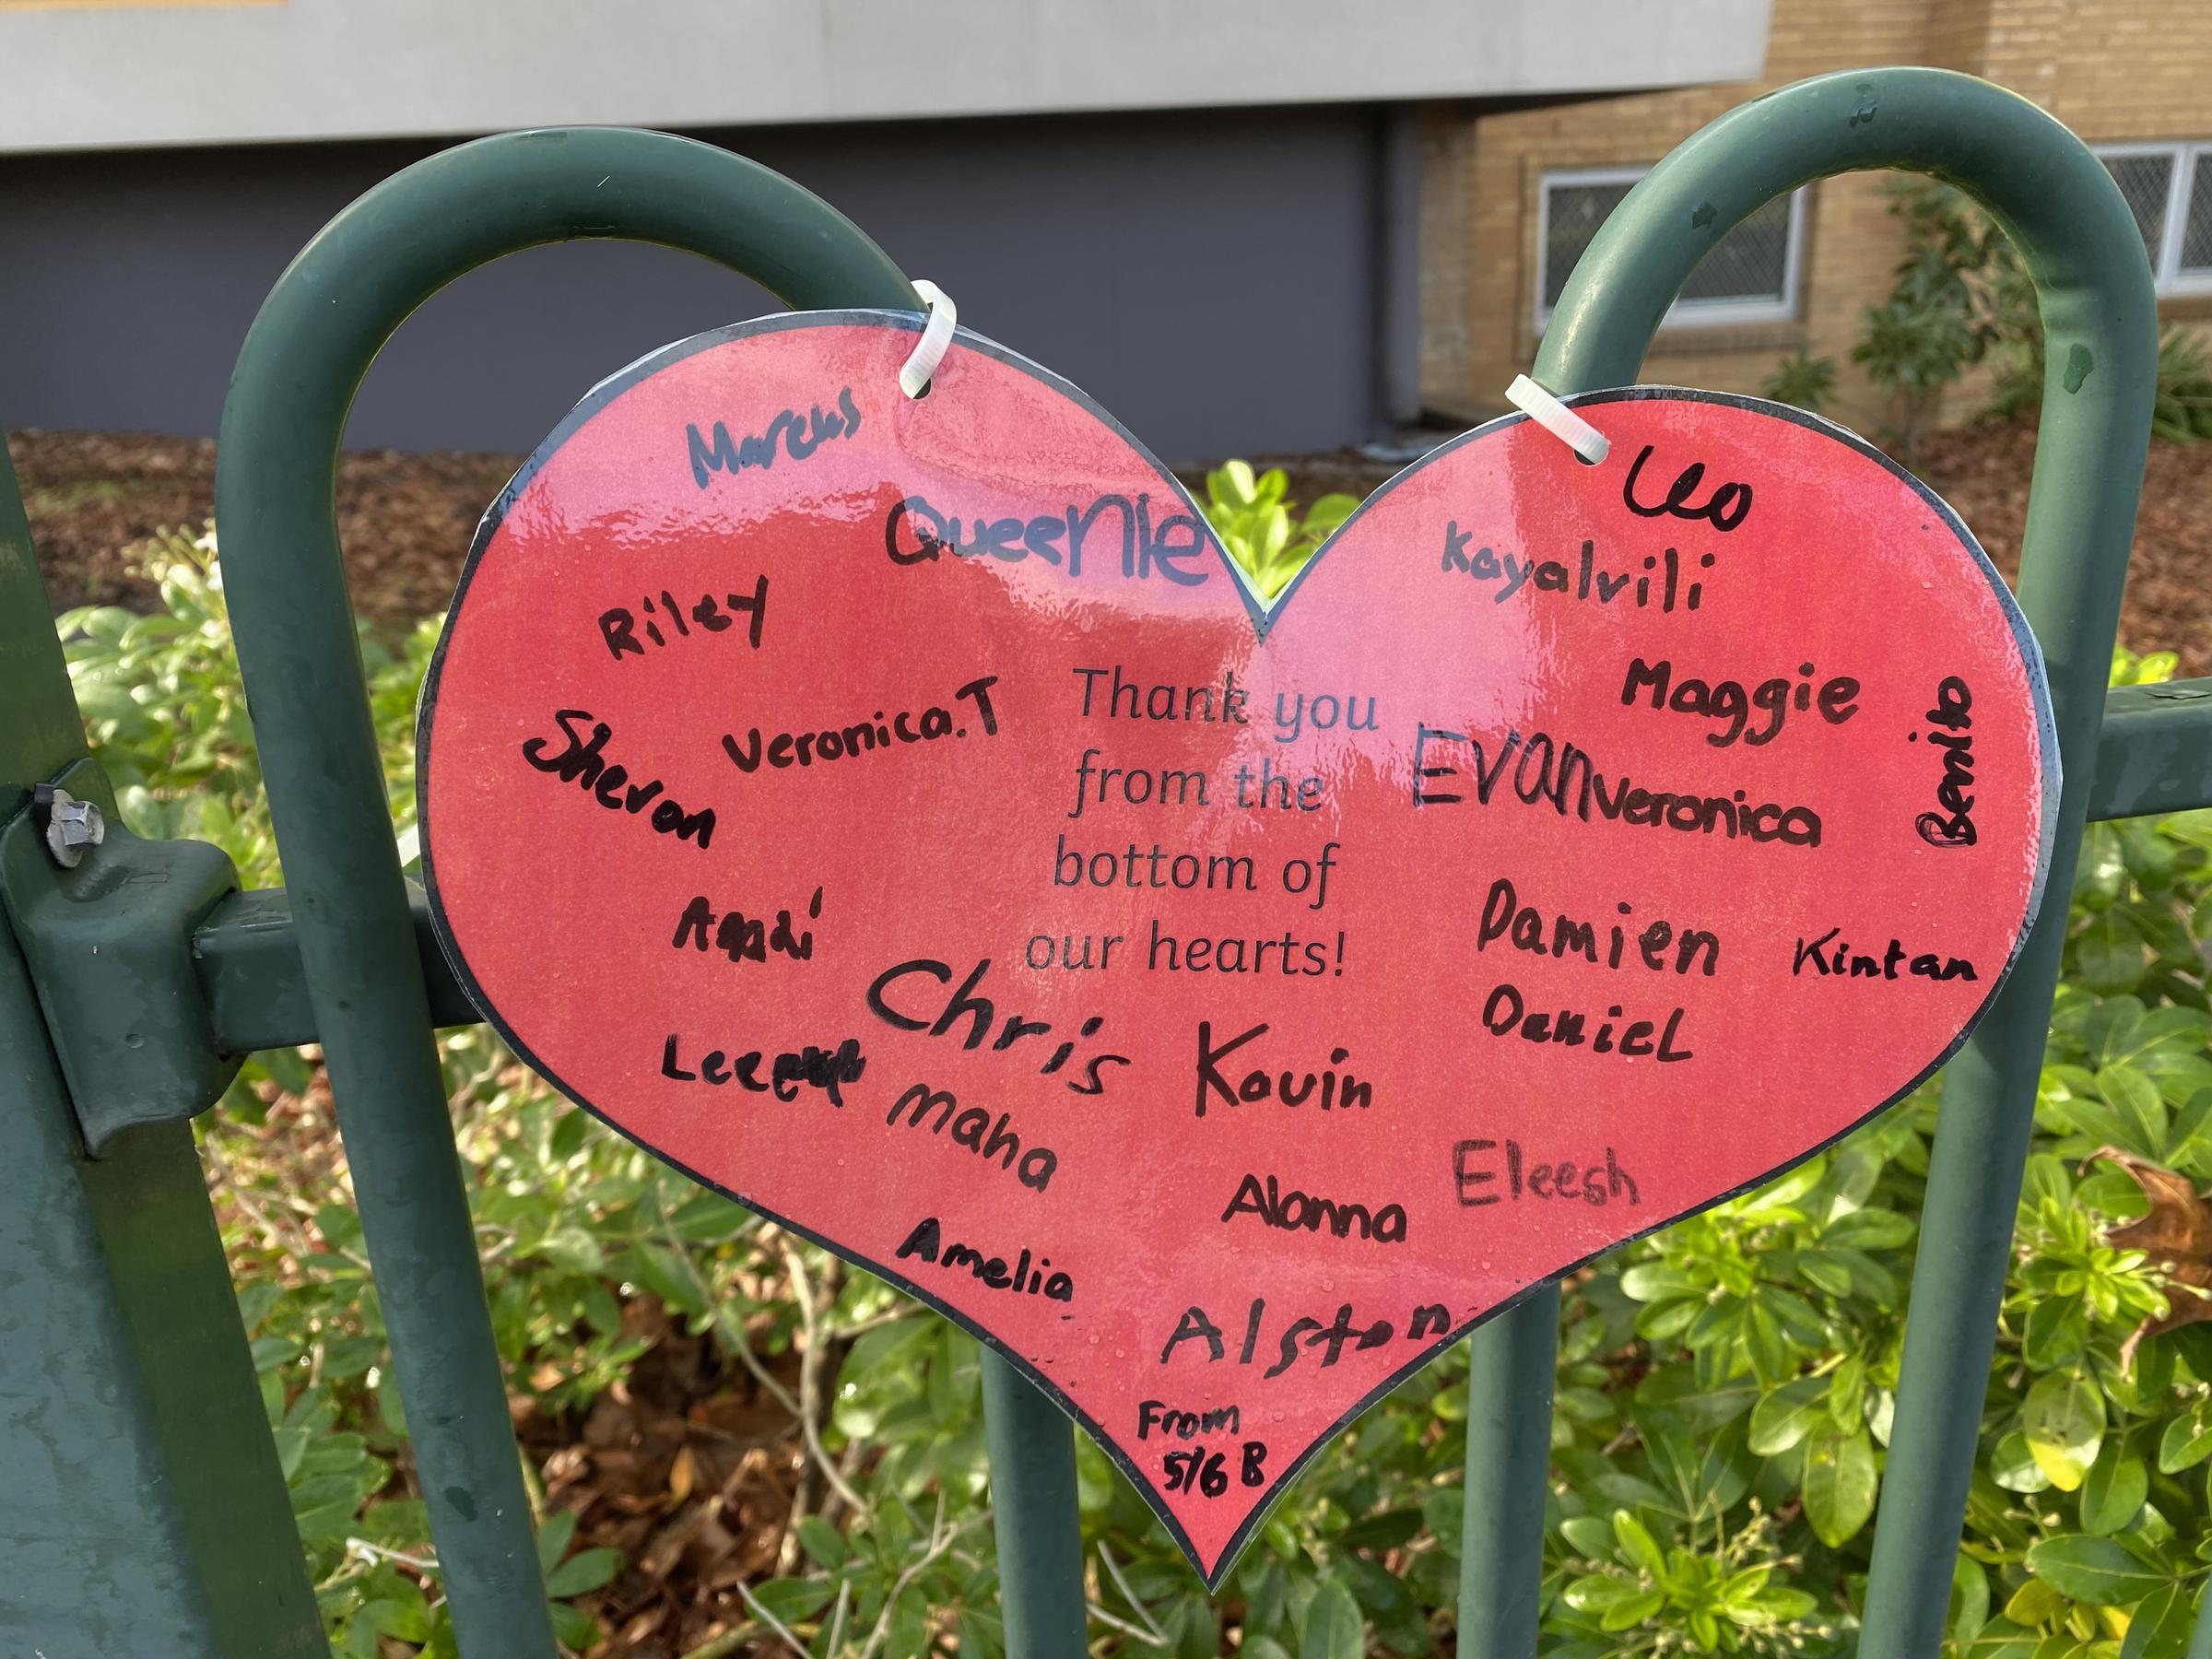 Marcus
Queenie
Leo
Kayalvili
Riley
Maggie
Benito
Thank you
from the
bottom of
our hearts!
Veronica.T
Shevon
EVAN
Veronica
Damien
Kintan
Daniel
Chris
Kavin
Maha
Eleesh
Alanna
Amelia
Alston
From
5/6 B